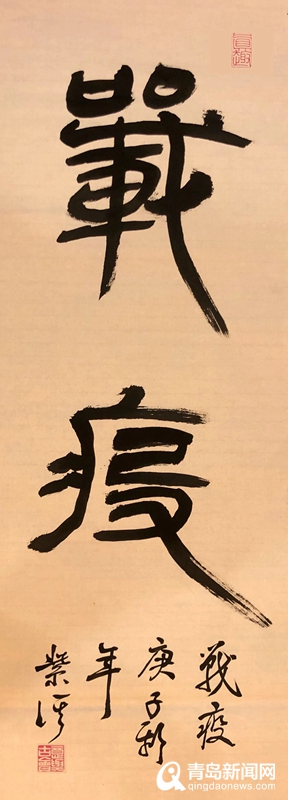 戰
疫
戰疫
庚子新
年
青岛新闻网
qingdaonews.com